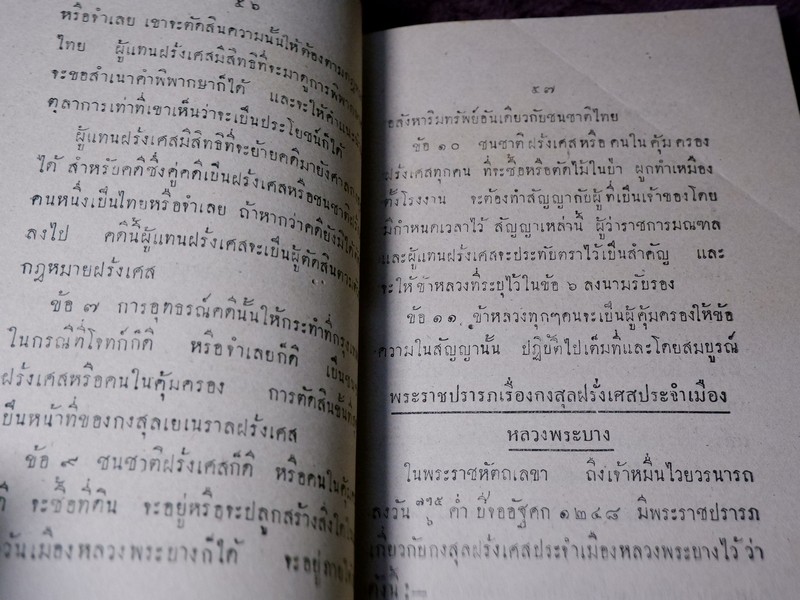 ๕๖
หรือจำเลย เขาจะตัดสินความนั้นให้ต้องตามกฎ
ไทย ผู้แทนฝรั่งเศสมีสิทธิที่จะมาดูการพิพาก
จะขอสำเนาคำพิพากษาก็ได้ และจะให้คำแนะนำ
ตุลาการเท่าที่เขาเห็นว่าจะเป็นประโยชน์ก็ได้
ผู้แทนฝรั่งเศสมีสิทธิที่จะย้ายคดีมายังศาล
ได้ สำหรับคดีซึ่งคู่คดีเป็นฝรั่งเศสหรือชนชาติ
คนหนึ่งเป็นไทยหรือจำเลย ถ้าหากว่าคดียังมิได้
ลงไป คดีนี้ผู้แทนฝรั่งเศสจะเป็นผู้ตัดสินตาม
กฎหมายฝรั่งเศส
ข้อ ๗ การอุทธรณ์คดีนั้นให้กระทำที่กรุงเทพ
ในกรณีที่โจทก์ก็ดี หรือจำเลยก็ดี เป็นชน
ฝรั่งเศสหรือคนในคุ้มครอง การตัดสินชั้นที่
เป็นหน้าที่ของกงสุลเยเนราลฝรั่งเศส
ข้อ ๙ ชนชาติฝรั่งเศสก็ดี หรือคนในคุ้ม
ดี จะซื้อที่ดิน จะอยู่หรือจะปลูกสร้างสิ่งใด
วันเมืองหลวงพระบางก็ได้ จะอยู่ภายใ
๕๗
อสังหาริมทรัพย์อันเดียวกับชนชาติไทย
ข้อ ๑๐ ชนชาติฝรั่งเศสหรือ คนใน คุ้ม ครอง
ฝรั่งเศสทุกคน ที่จะซื้อหรือตัดไม้ในป่า ผูกทำเหมือง
ตั้งโรงงาน จะต้องทำสัญญากับผู้ที่เป็นเจ้าของโดย
มีกำหนดเวลาไว้ สัญญาเหล่านี้ ผู้ว่าราชการมณฑล
และผู้แทนฝรั่งเศสจะประทับตราไว้เป็นสำคัญ และ
จะให้ข้าหลวงที่ระบุไว้ในข้อ ๖ ลงนามรับรอง
ข้อ ๑๑ ข้าหลวงทุกๆคนจะเป็นผู้คุ้มครองให้ข้อ
ความในสัญญานั้น ปฏิบัติไปเต็มที่และโดยสมบูรณ์
พระราชปรารภเรื่องกงสุลฝรั่งเศสประจำเมือง
หลวงพระบาง
ในพระราชหัตถเลขา ถึงเจ้าหมื่นไวยวรนารถ
ลงวัน ค่ำ ปีจออัฐศก ๑๒๔๘ มีพระราชปรารภ
เกี่ยวกับกงสุลฝรั่งเศสประจำเมืองหลวงพระบางไว้ ว่า
ดังนี้ :—